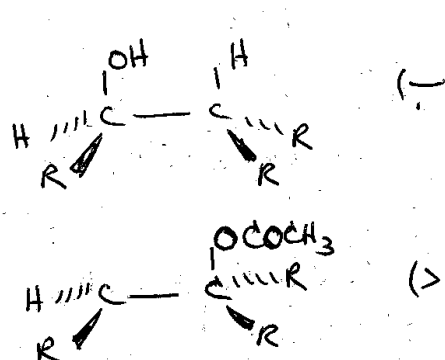 OH H
H C — C R (—
R R
OCOCH3
H C — C R (>
R R